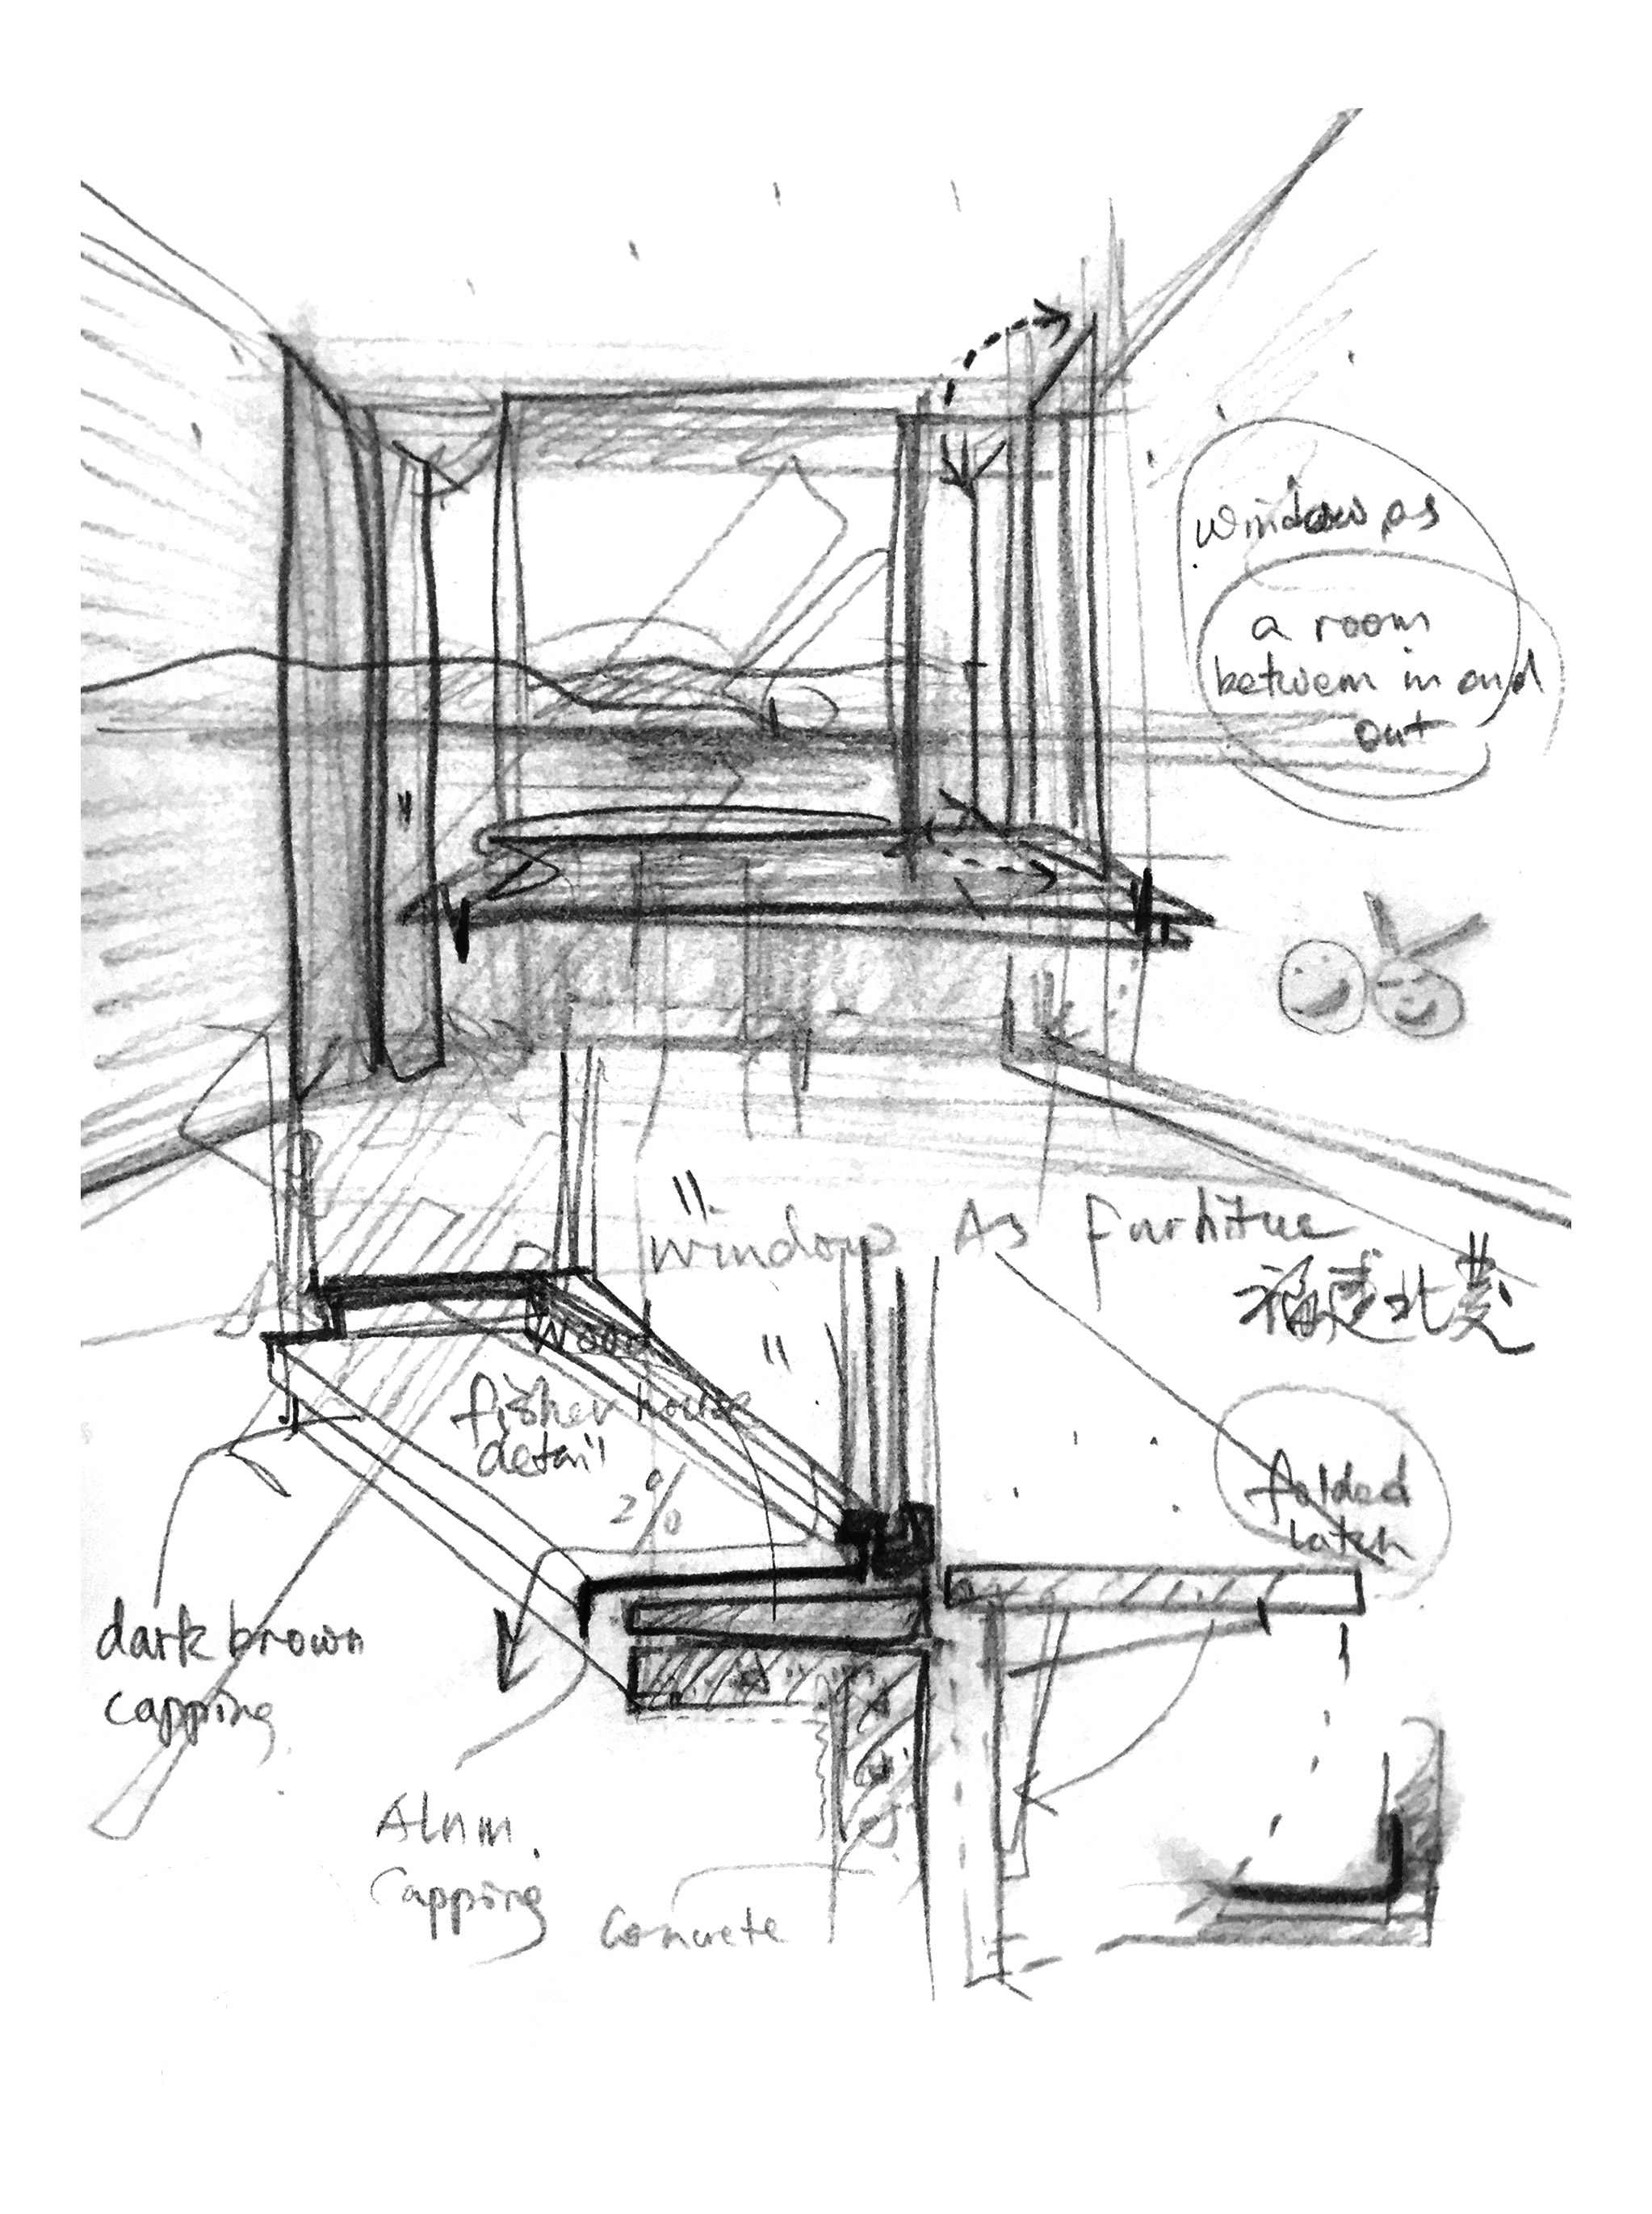 window as
a room
between in and
out
window As furnitue
福建北茭
Wood
fisher house
detail
2%
folded
latch
dark brown
capping
Alum.
Capping
Concrete